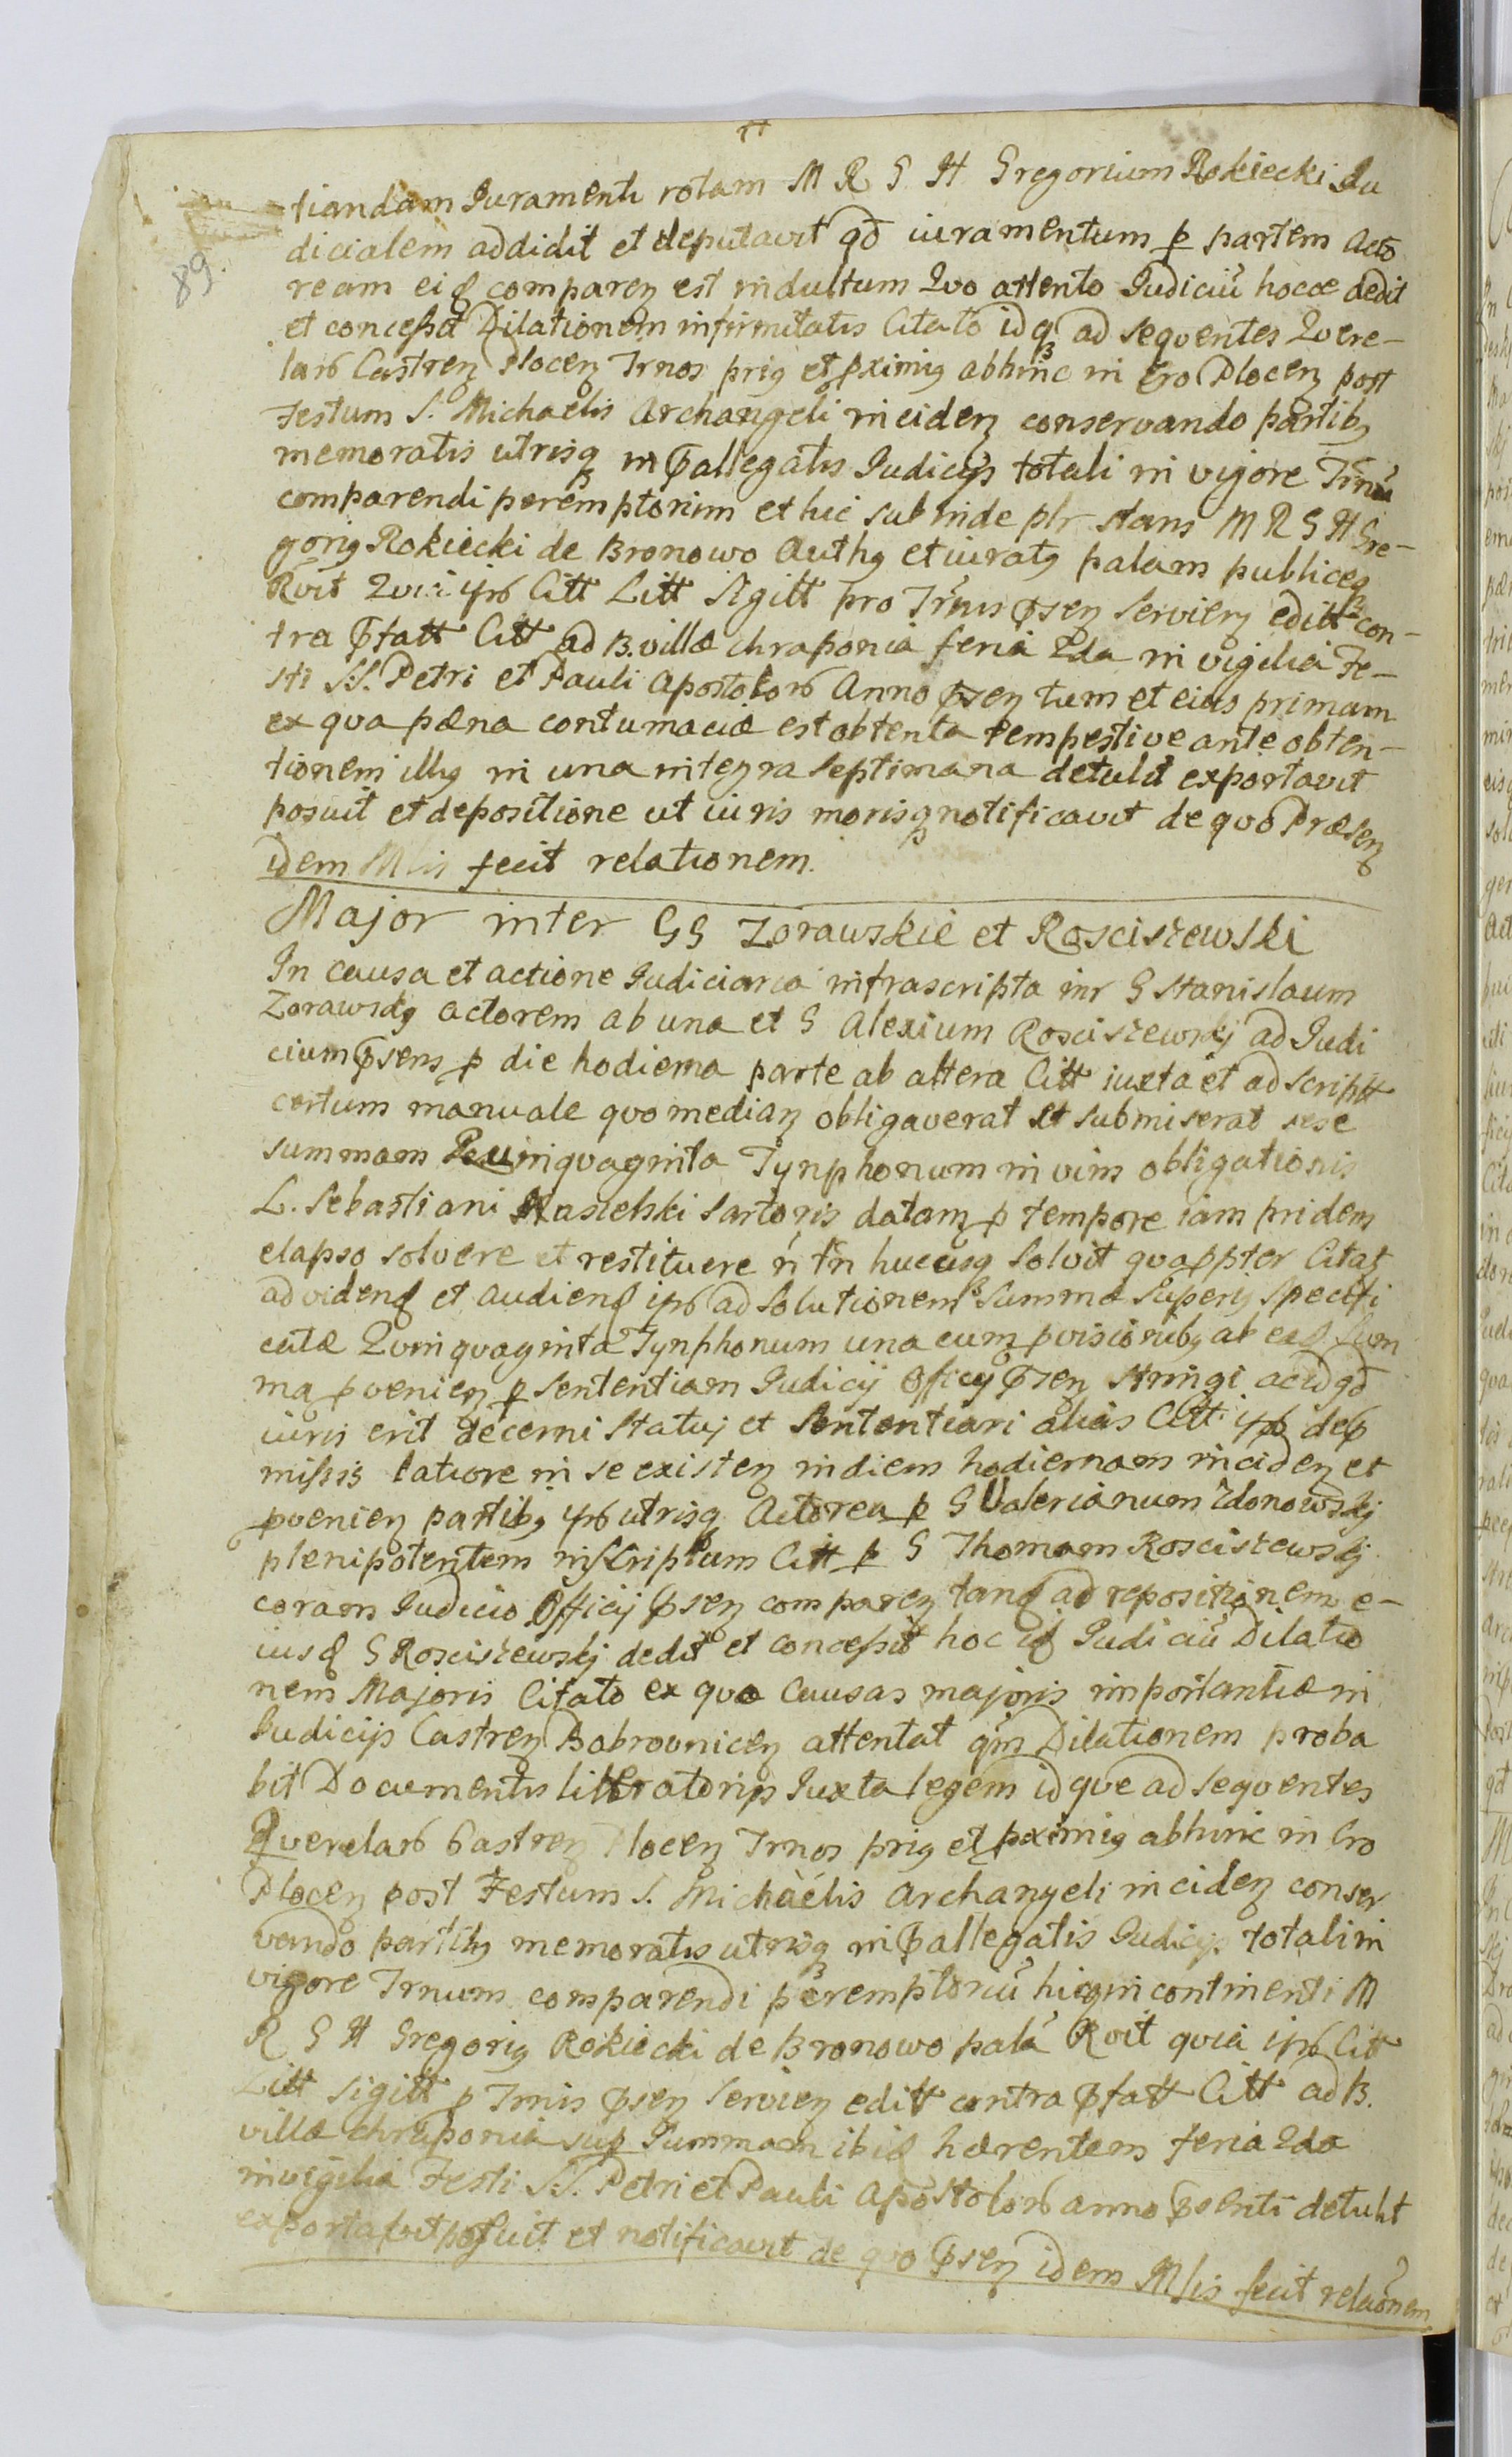 89.
tiandam Juramenti rotam M R G H Gregorium Rokiecki Ju
dicialem addidit et deputavit qd iuramentum p partem Acto
ream eiq comparen est indultum Quo attento Judiciu hocce dedit
et concessit Dilationem infirmitatis Citato idq ad sequentes Quere-
larb Castren Plocen Trnos prig et pximig abhinc in Cro Plocen post
Festum S. Michaelis Archangeli inciden conservando partibg
memoratis utrisq in pallegatis Judicijs totali in vigore Trnu
comparendi peremptorium et hic subinde plr stans M R G H Gre-
gorig Rokiecki de Bronowo Authg et iuratg palam publiceq
Rvit Quia iprb Citt Litt Sigitt pro Trnis psen Servien editt con-
tra pfatt Citt ad B. villæ Chraponia feria 2da in vigilia Fe-
sti SS. Petri et Pauli Apostolorb Anno psen tum et eius primam
ex qua pæna contumaciæ est obtenta tempestive ante obten-
tionem illig in una integra septimana detulit exportavit
posuit et depositione ut iuris morisq notificavit de quo Præsen
idem Mlis fecit relationem.
Major inter GG Zorawskie et Rosciszewski
In causa et actione Judiciaria infrascripta inr G Stanislaum
Zorawskg actorem ab una et G Alexium Rosciszewskj ad Judi
cium psens p die hodierna parte ab altera Citt iuxta et ad script
certum manuale quo median obligaverat et submiserat sese
summam Quinquaginta Tynphonum in vim obligationis
L. Sebastiani Sartoris datam p tempore iam pridem
elapso solvere et restituere n tn hucusq solvit quappter Citat
ad videnq et audienq iprb ad solutionem Summæ superig specifi
catæ Quinquaginta Tynphonum una cum pvisionibg ab eaq sum
ma pvenien p sententiam Judicij Officij psen stringi ac id qd
iuris erit decerni statuj et sententiari alias Citt iprb dep
missis latiore in se existen in diem hodiernam inciden et
pvenien partibg iprb utrisq Actorea p G Valerianum Zdonowskj
plenipotentem inscriptum Citt p G Thomam Rosciszewskj
coram Judicio Officij psen comparen tanq ad repositionem e-
iusq G Rosciszewskj dedit et concessit hoc iq Judiciu Dilatio
nem Majoris Citato ex quo Causas majoris importantiæ in
Judicijs Castren Bobrovnicen attentat qm Dilationem proba
bit Documentis litteratorijs Juxta legem idque ad sequentes
Querelarb Castren Plocen Trnos prig et pximig abhinc in Cro
Plocen post Festum S. Michaëlis Archangeli inciden conser
vando partibg memoratis utrisq in pallegatis Judicijs totali in
vigore Trnum comparendi peremptoriu hicq in continenti M
R G H Gregorig Rokiecki de Bronowo pala Rvit quia iprb Citt
Litt Sigitt p Trnis psen Servien editt contra pfatt Citt ad B.
villæ Chraponia sup Summam ibiq hærentem feria 2da
in vigilia Festi SS. Petri et Pauli Apostolorb anno psenti detulit
exportavit posuit et notificavit de quo psen idem Mlis fecit relaonem